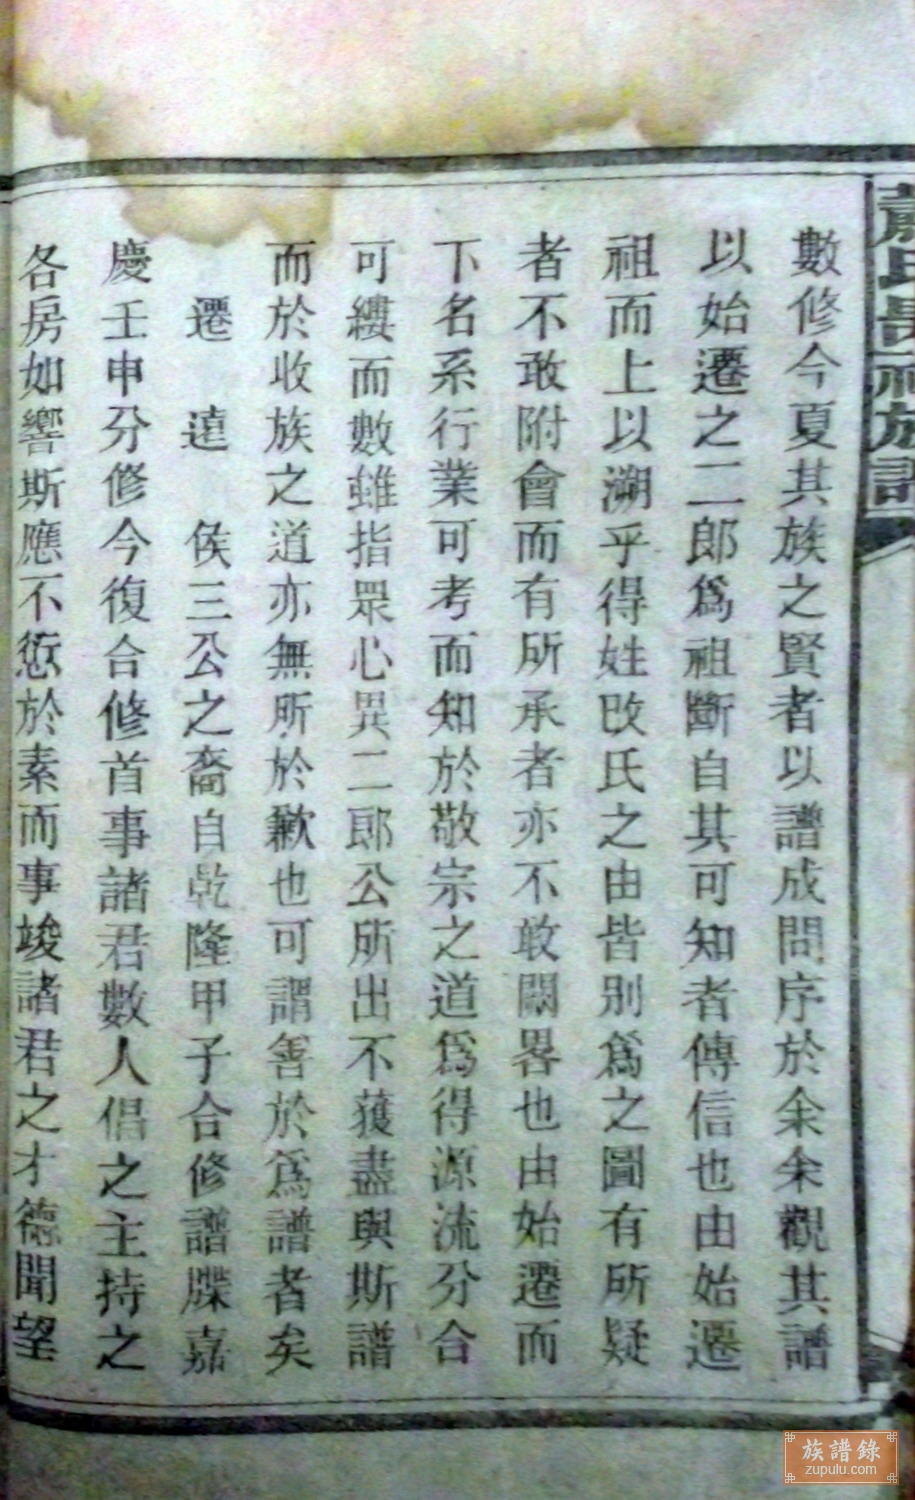 數修今夏其族之賢者以譜成問序於余余觀其譜
以始遷之二郎爲祖斷自其可知者傳信也由始遷
祖而上以溯乎得姓改氏之由皆別爲之圖有所疑
者不敢附會而有所承者亦不敢闕畧也由始遷而
下名系行業可考而知於敬宗之道爲得源流分合
可縷而數雖指眾心異二郎公所出不獲盡與斯譜
而於收族之道亦無所於歉也可謂善於爲譜者矣
遷遠侯三公之裔自乾隆甲子合修譜牒嘉
慶壬申分修今復合修首事諸君數人倡之主持之
各房如響斯應不愆於素而事竣諸君之才德聞望
族譜
族譜錄
zupulu.com